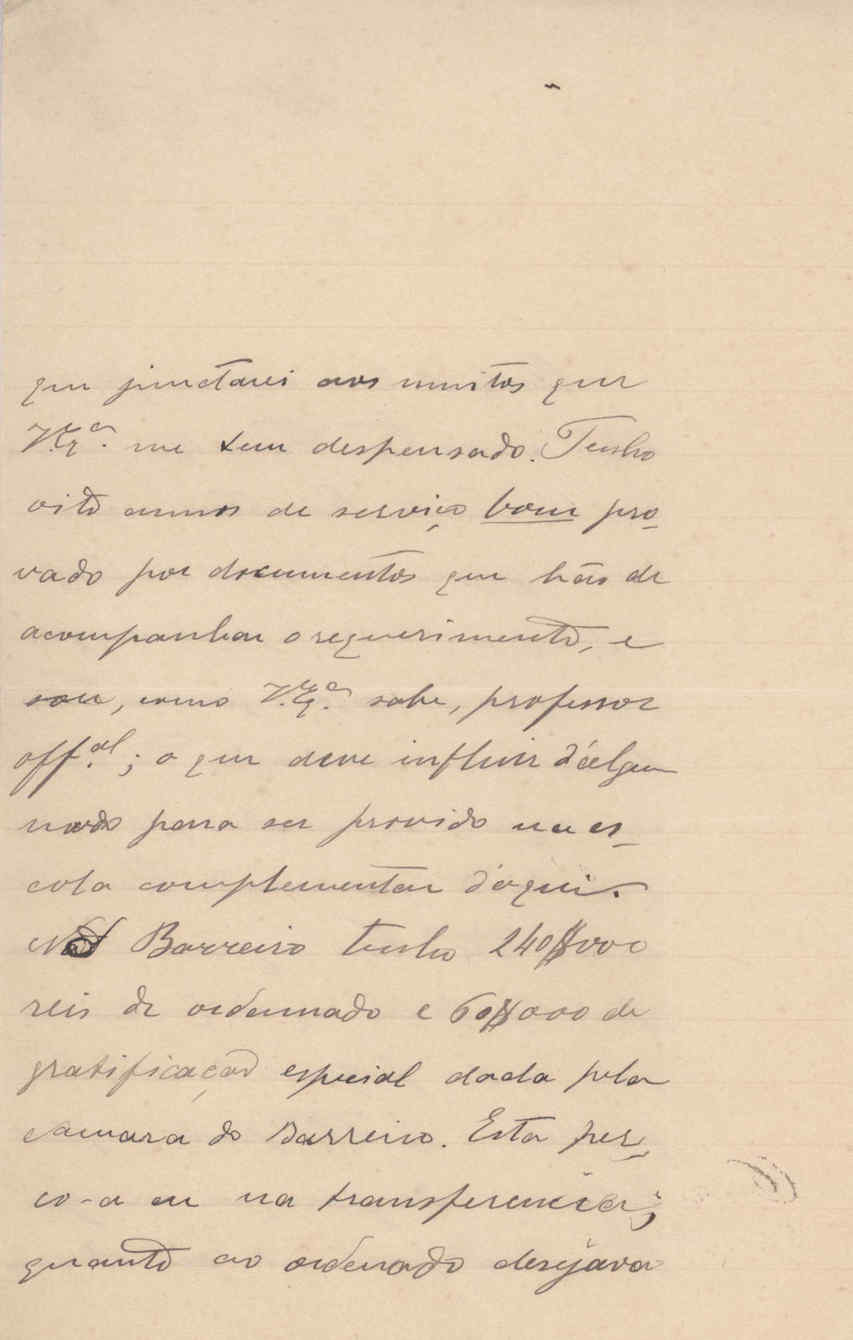 que junctarei aos muitos que
V. Ex.ª me tem despensado. Tenho
oito annos de serviço bom pro-
vado por documentos que hão de
acompanhar o requerimento, e
sou, como V. Ex.ª sabe, professor
off.al; o que deve influir d'algum
modo para ser provido na es-
cola complementar d'aqui.
No Barreiro tenho 240$000
reis de ordennado e 60$000 de
gratificação especial dada pela
camara do Barreiro. Esta per-
co-a eu na transferencia;
quanto ao ordenado desejava